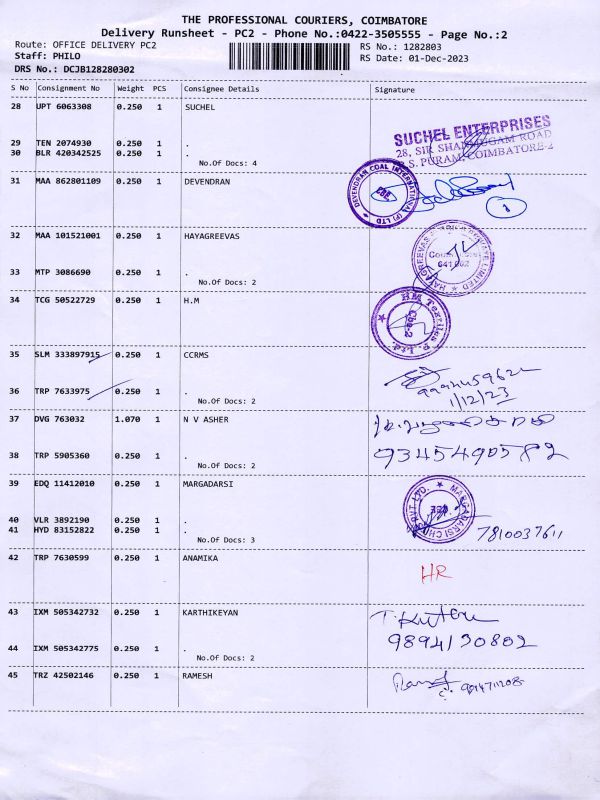 THE PROFESSIONAL COURIERS, COIMBATORE
Delivery Runsheet - PC2 - Phone No.:0422-3505555 - Page No.:2
Route: OFFICE DELIVERY PC2
RS No.: 1282803
Staff: PHILO
RS Date: 01-Dec-2023
DRS No.: DCJB128280302
S No Consignment No Weight PCS Consignee Details Signature
28 UPT 6063308 0.250 1 SUCHEL
SUCHEL ENTERPRISES
28, SIR SHANMUGAM ROAD
R.S. PURAM, COIMBATORE-2
29 TEN 2074930 0.250 1 .
30 BLR 420342525 0.250 1 .
No.Of Docs: 4
31 MAA 862801109 0.250 1 DEVENDRAN
DEVENDRAN COAL INTERNATIONAL (P) LTD
CBE
1
32 MAA 101521001 0.250 1 HAYAGREEVAS
HAYAGREEVAS PRIVATE LIMITED
Coimbatore
641 002
33 MTP 3086690 0.250 1 .
No.Of Docs: 2
34 TCG 50522729 0.250 1 H.M
HM Textiles P. Ltd.
Cbe-2
35 SLM 333897915 0.250 1 CCRMS
36 TRP 7633975 0.250 1 .
1/12/23
No.Of Docs: 2
37 DVG 763032 1.070 1 N V ASHER
38 TRP 5905360 0.250 1 .
9345490582
No.Of Docs: 2
39 EDQ 11412010 0.250 1 MARGADARSI
MARGADARSI CHIT PVT. LTD.
40 VLR 3892190 0.250 1 .
41 HYD 83152822 0.250 1 .
7810037611
No.Of Docs: 3
42 TRP 7630599 0.250 1 ANAMIKA
HR
43 IXM 505342732 0.250 1 KARTHIKEYAN
9894130802
44 IXM 505342775 0.250 1 .
No.Of Docs: 2
45 TRZ 42502146 0.250 1 RAMESH